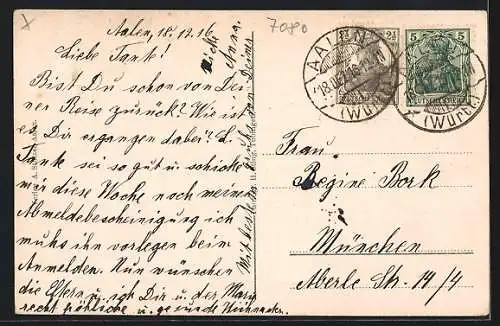 7080
Aalen, 18.12.16
Liebe Tank!
Bist Du schon von Dei
ner Reise zurück? Wie ist
es Dir ergangen dabei? L.
Tank sei so gut u. schicke
mir diese Woche noch meinen
Abmeldebescheinigung ich
muhs ihn vorlegen beim
Anmelden. Nun wünschen
die Eltern u. ich Dir u. der Mary
recht fröhliche u. gesunde Weihnachten.
Mit besten Grüßen Deine
Nichte Anna.
AALEN
(Württ.)
2½
5
(Württ.)
Frau
Regine Bork
München
Aberle Str. 14/4